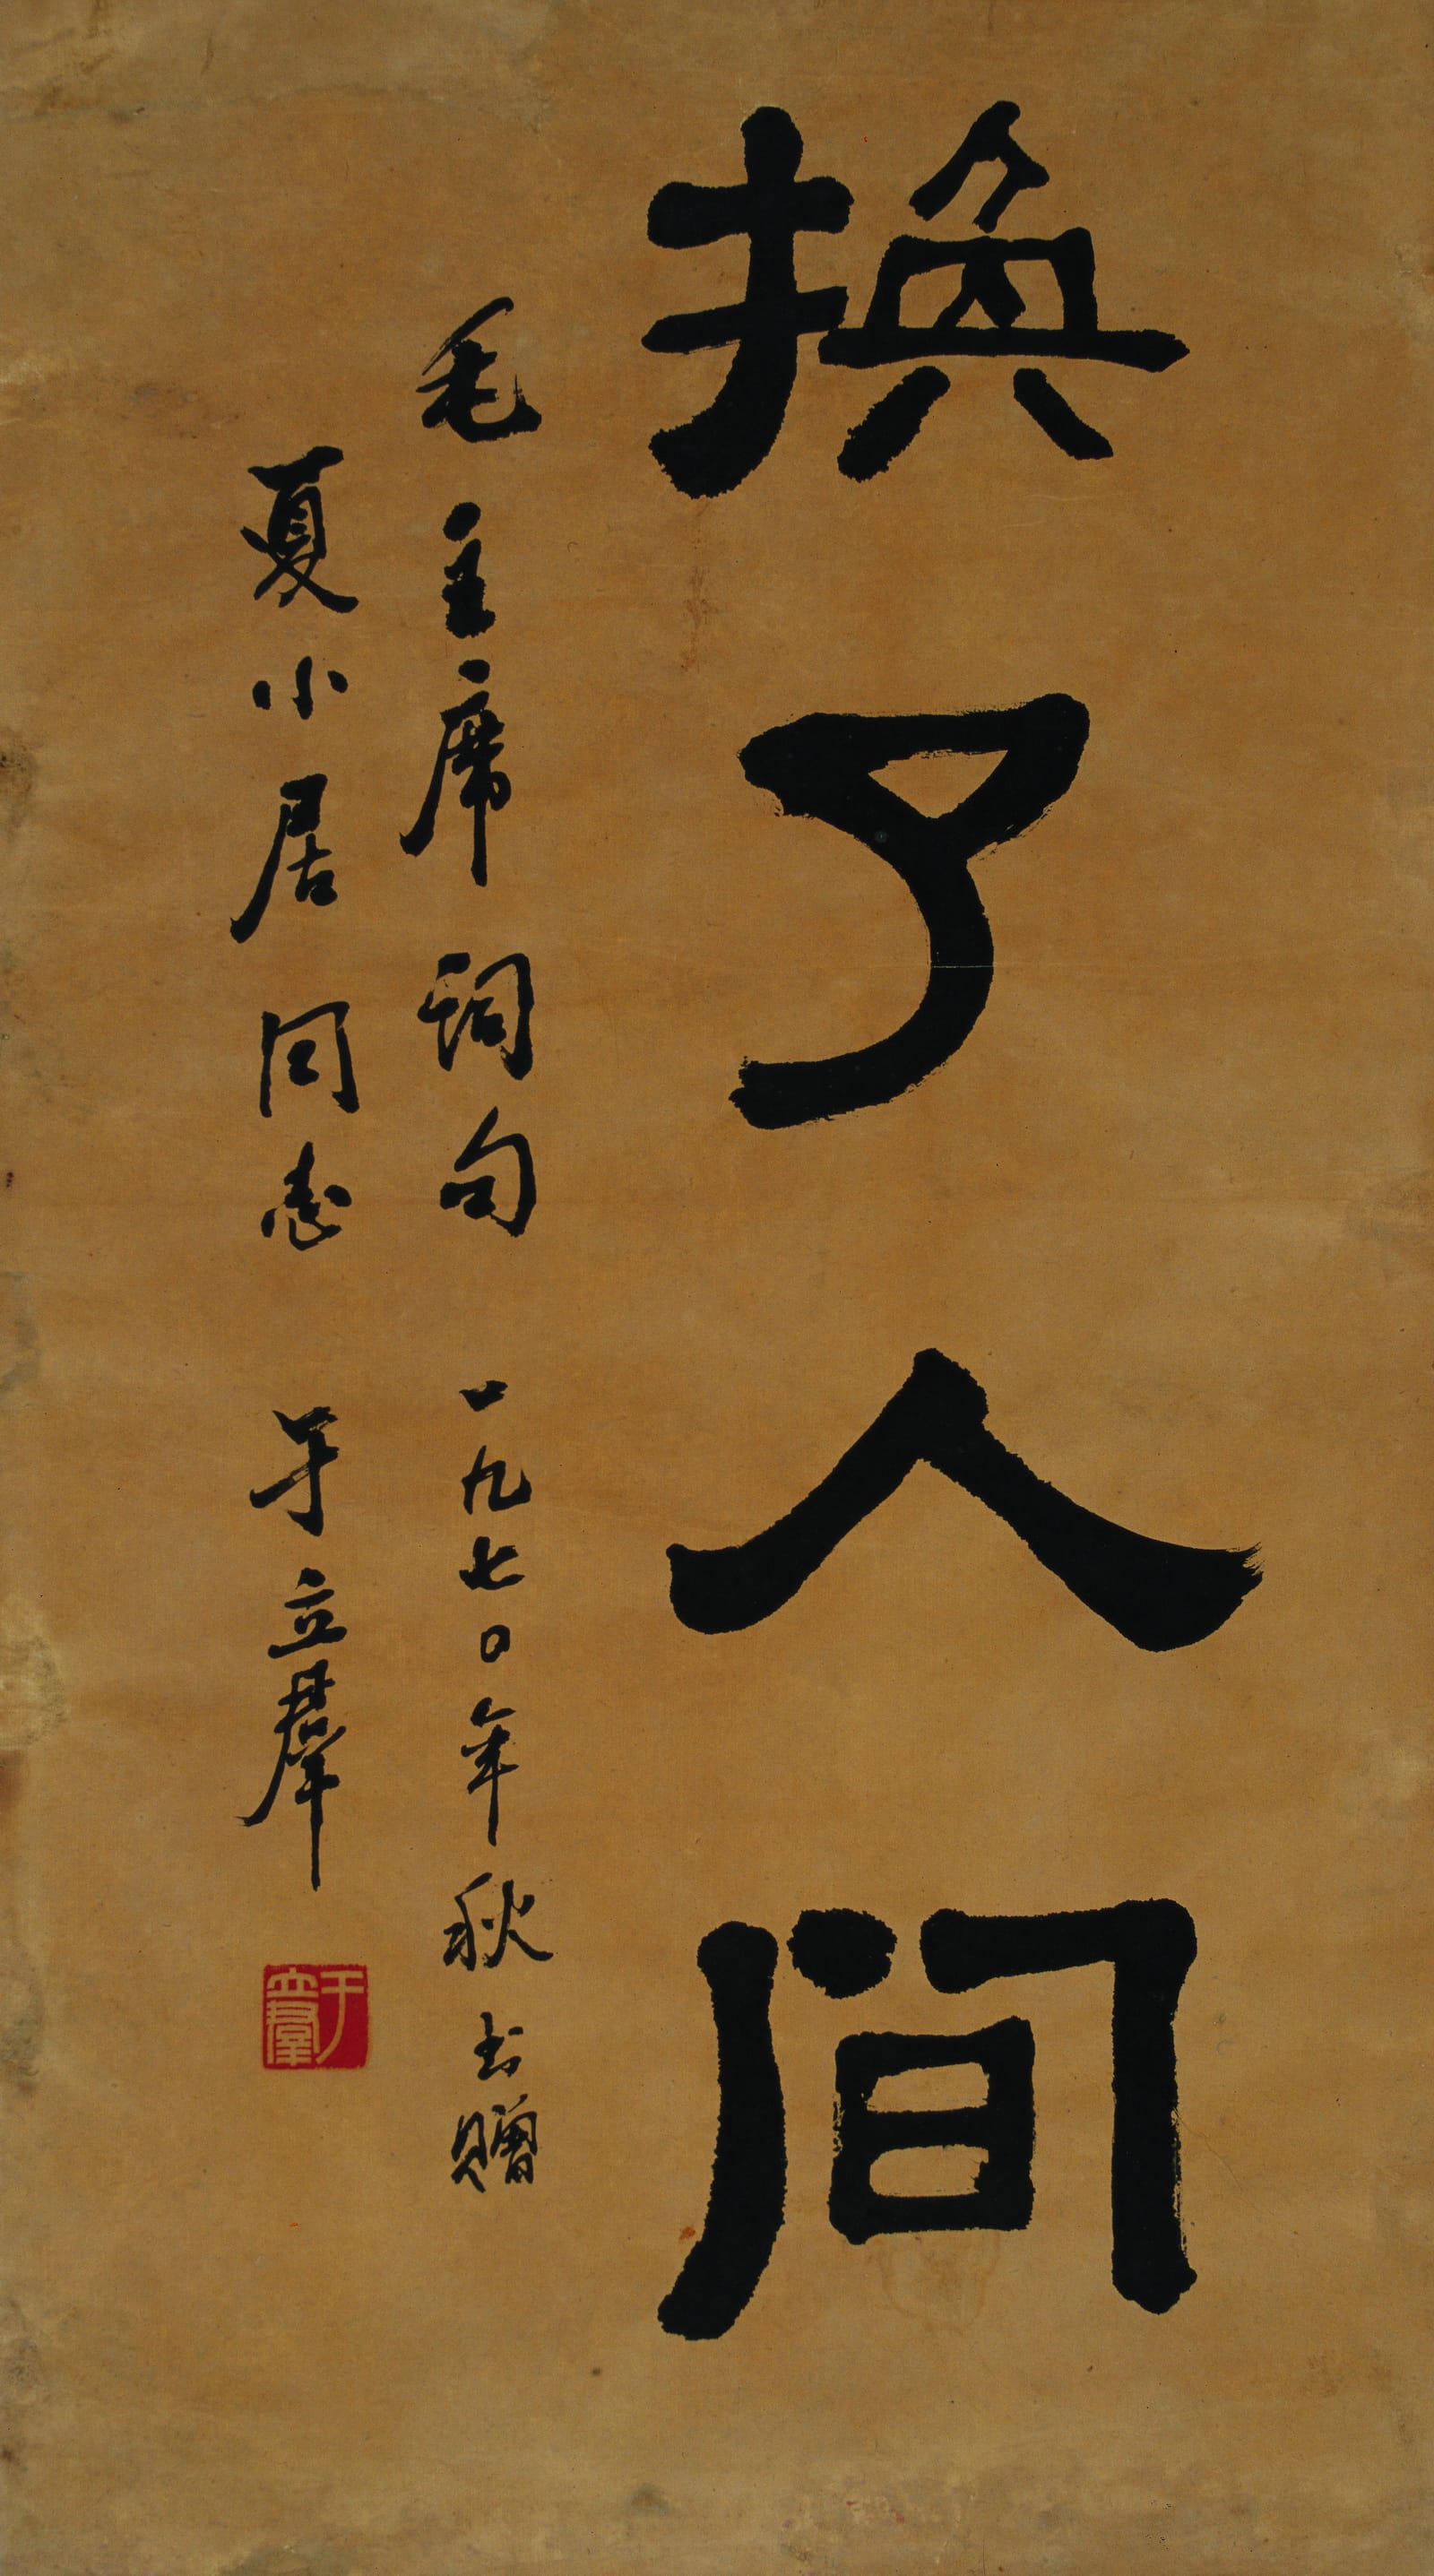 换了人间
毛主席词句 一九七〇年秋书赠
夏小居同志 于立群
于立群